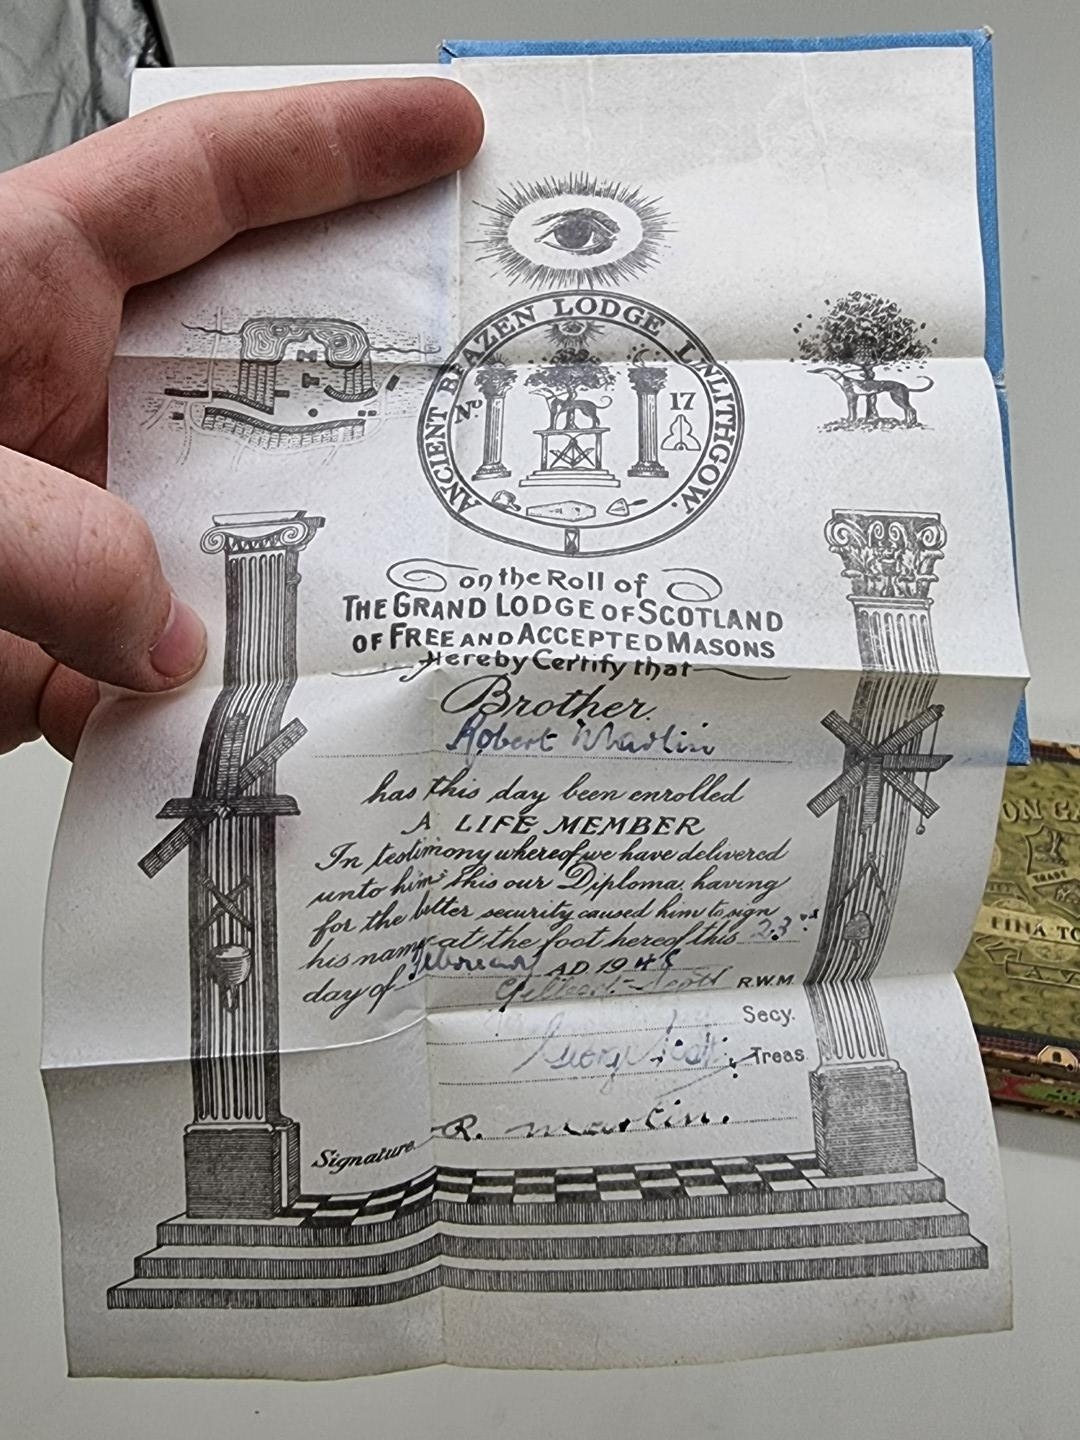 ANCIENT BRAZEN LODGE LINLITHGOW.
No 17
on the Roll of
THE GRAND LODGE OF SCOTLAND
OF FREE AND ACCEPTED MASONS
Hereby Certify that
Brother
Robert Martin
has this day been enrolled
A LIFE MEMBER
In testimony whereof we have delivered
unto him this our Diploma, having
for the better security caused him to sign
his name at the foot hereof this 23rd
day of February A.D. 19
Gilbert Scott R.W.M.
Secy.
George Scott Treas.
Signature R. Martin.
ON
TRADE